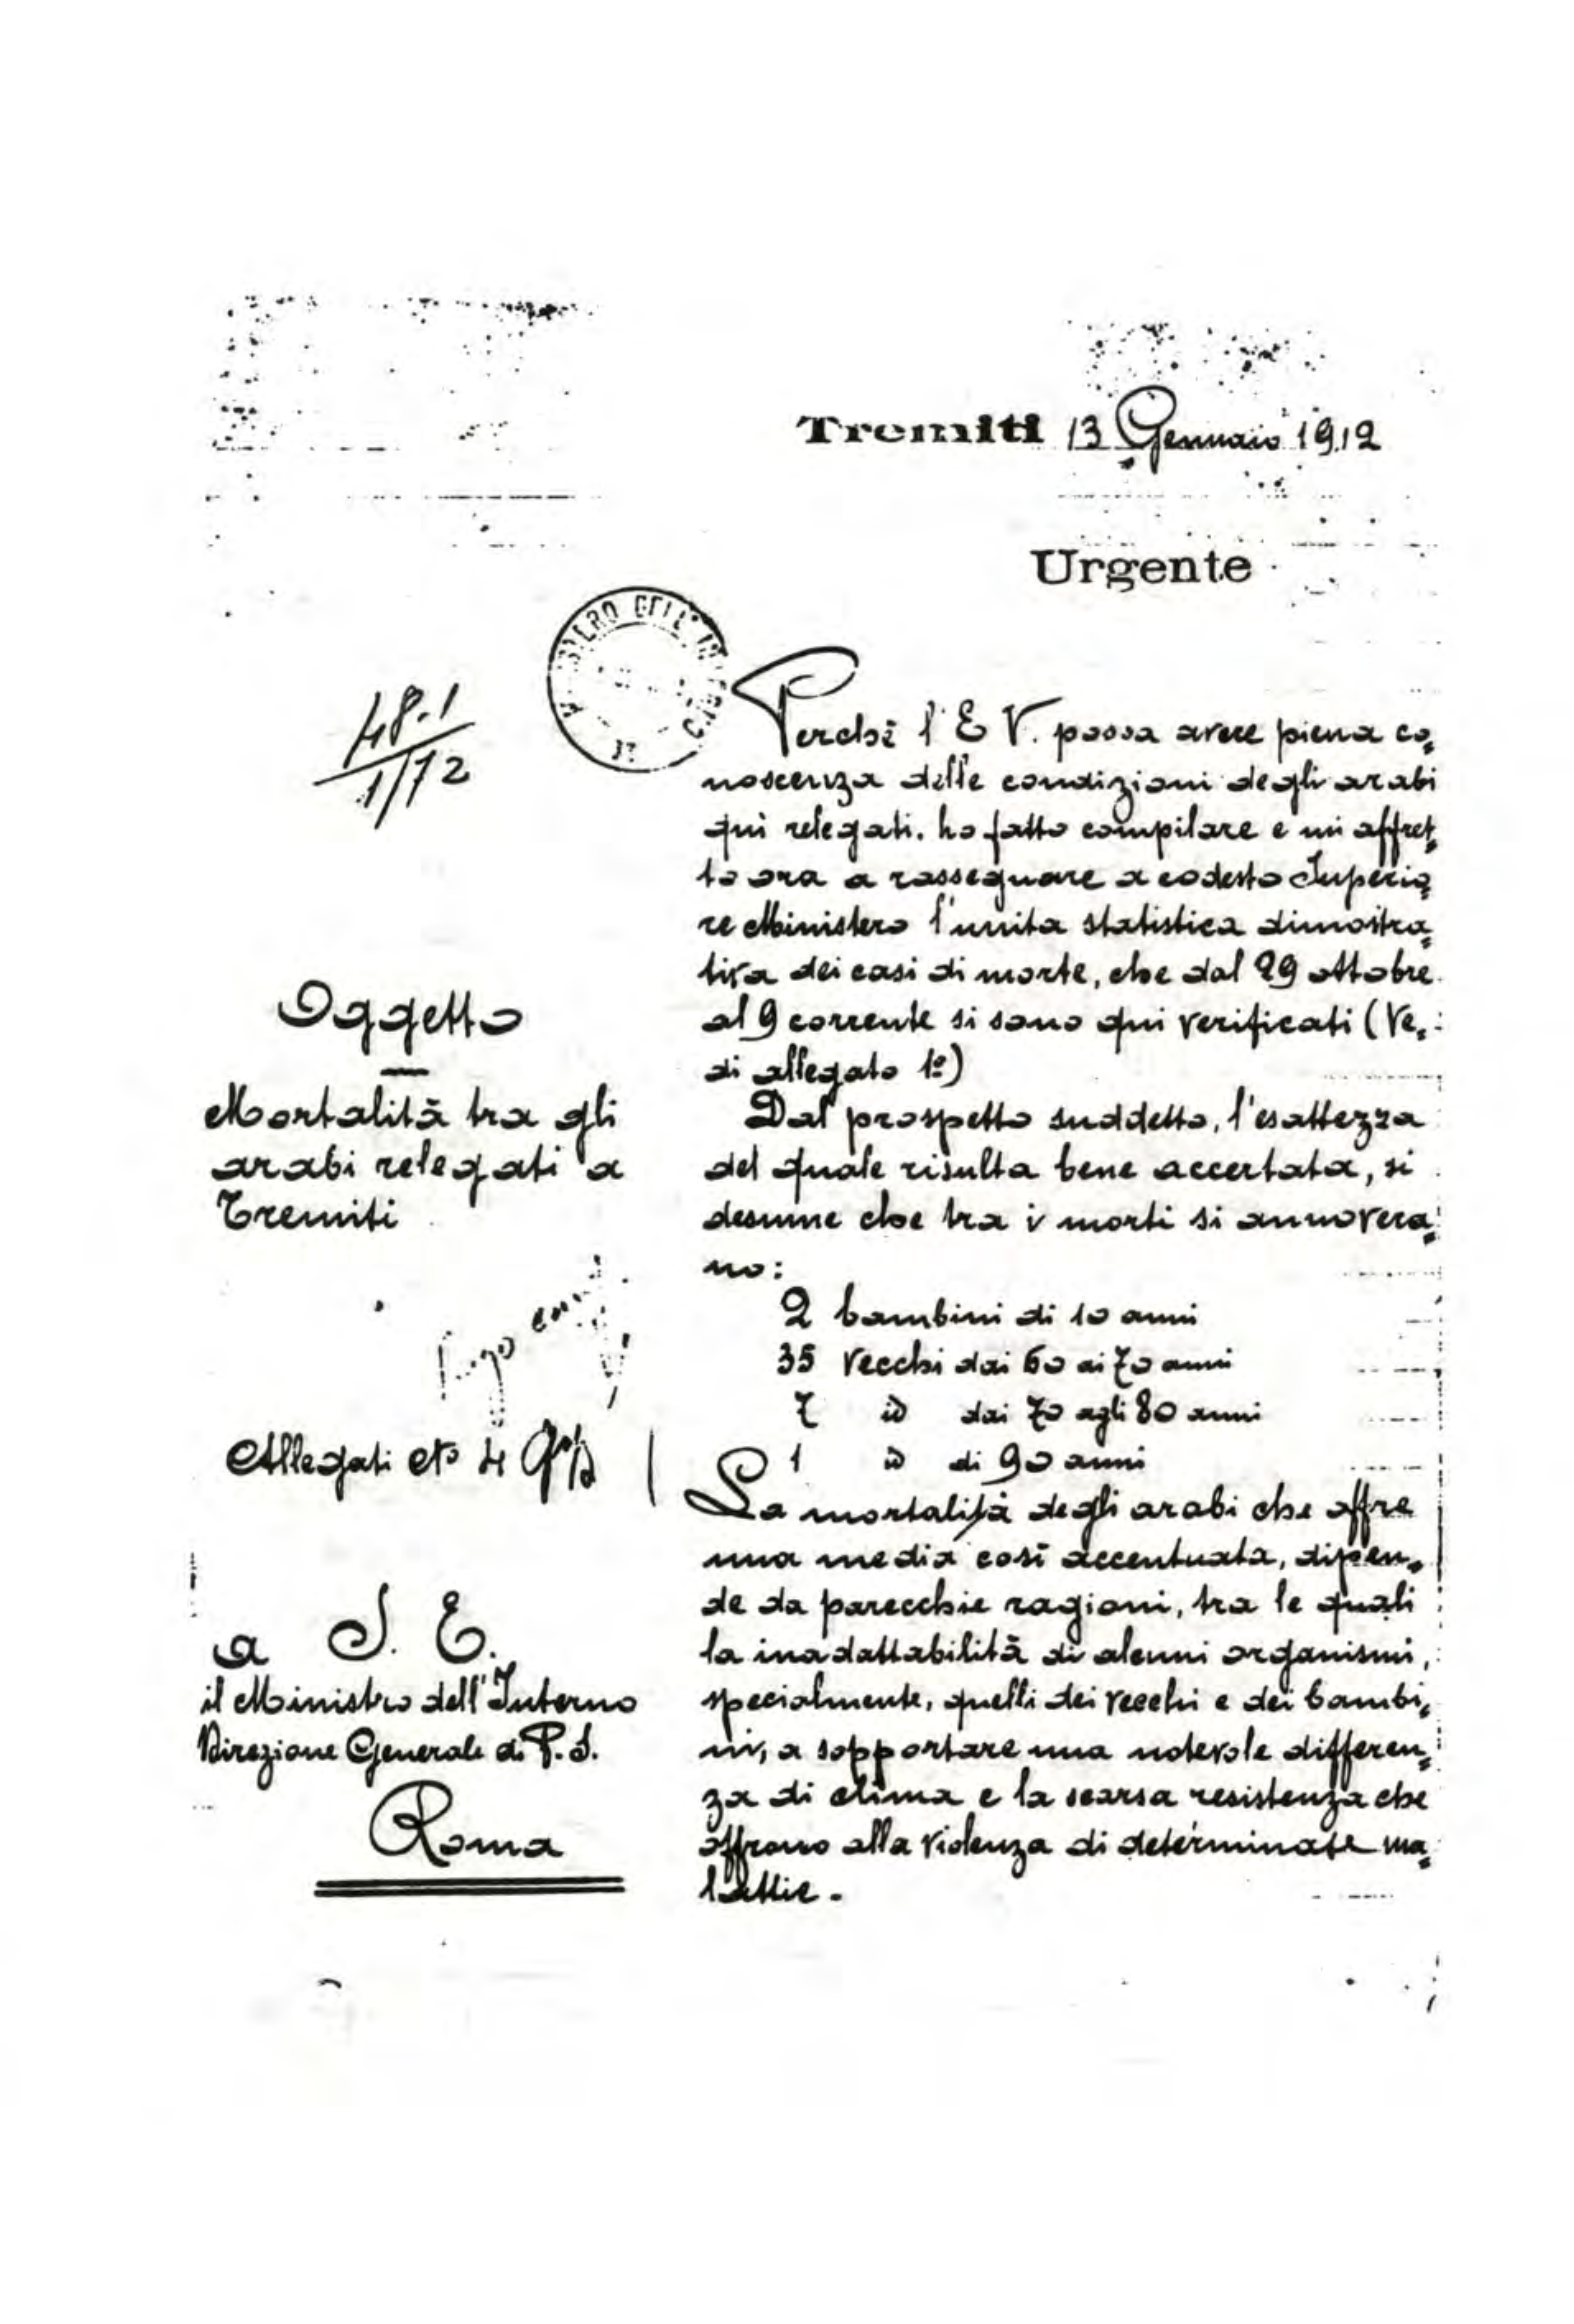 Tremiti 13 Gennaio 1912
Urgente
48.1
1/12
Oggetto
Mortalità tra gli
arabi relegati a
Tremiti
Allegati No 4
a S. E.
il Ministro dell'Interno
Direzione Generale di P. S.
Roma
Perchè l'E V. possa avere piena co=
noscenza delle condizioni degli arabi
quì relegati, ho fatto compilare e mi affret=
to ora a rassegnare a codesto Superio=
re Ministero l'unita statistica dimostra=
tiva dei casi di morte, che dal 29 ottobre
al 9 corrente si sono qui verificati (Ve=
di allegato 1º)
Dal prospetto suddetto, l'esattezza
del quale risulta bene accertata, si
desume che tra i morti si annovera=
no:
2 bambini di 10 anni
35 vecchi dai 60 ai 70 anni
7 id dai 70 agli 80 anni
1 id di 90 anni
La mortalità degli arabi che offre
una media così accentuata, dipen=
de da parecchie ragioni, tra le quali
la inadattabilità di alcuni organismi,
specialmente, quelli dei vecchi e dei bambi=
ni, a sopportare una notevole differen=
za di clima e la scarsa resistenza che
offrono alla violenza di determinate ma=
lattie.